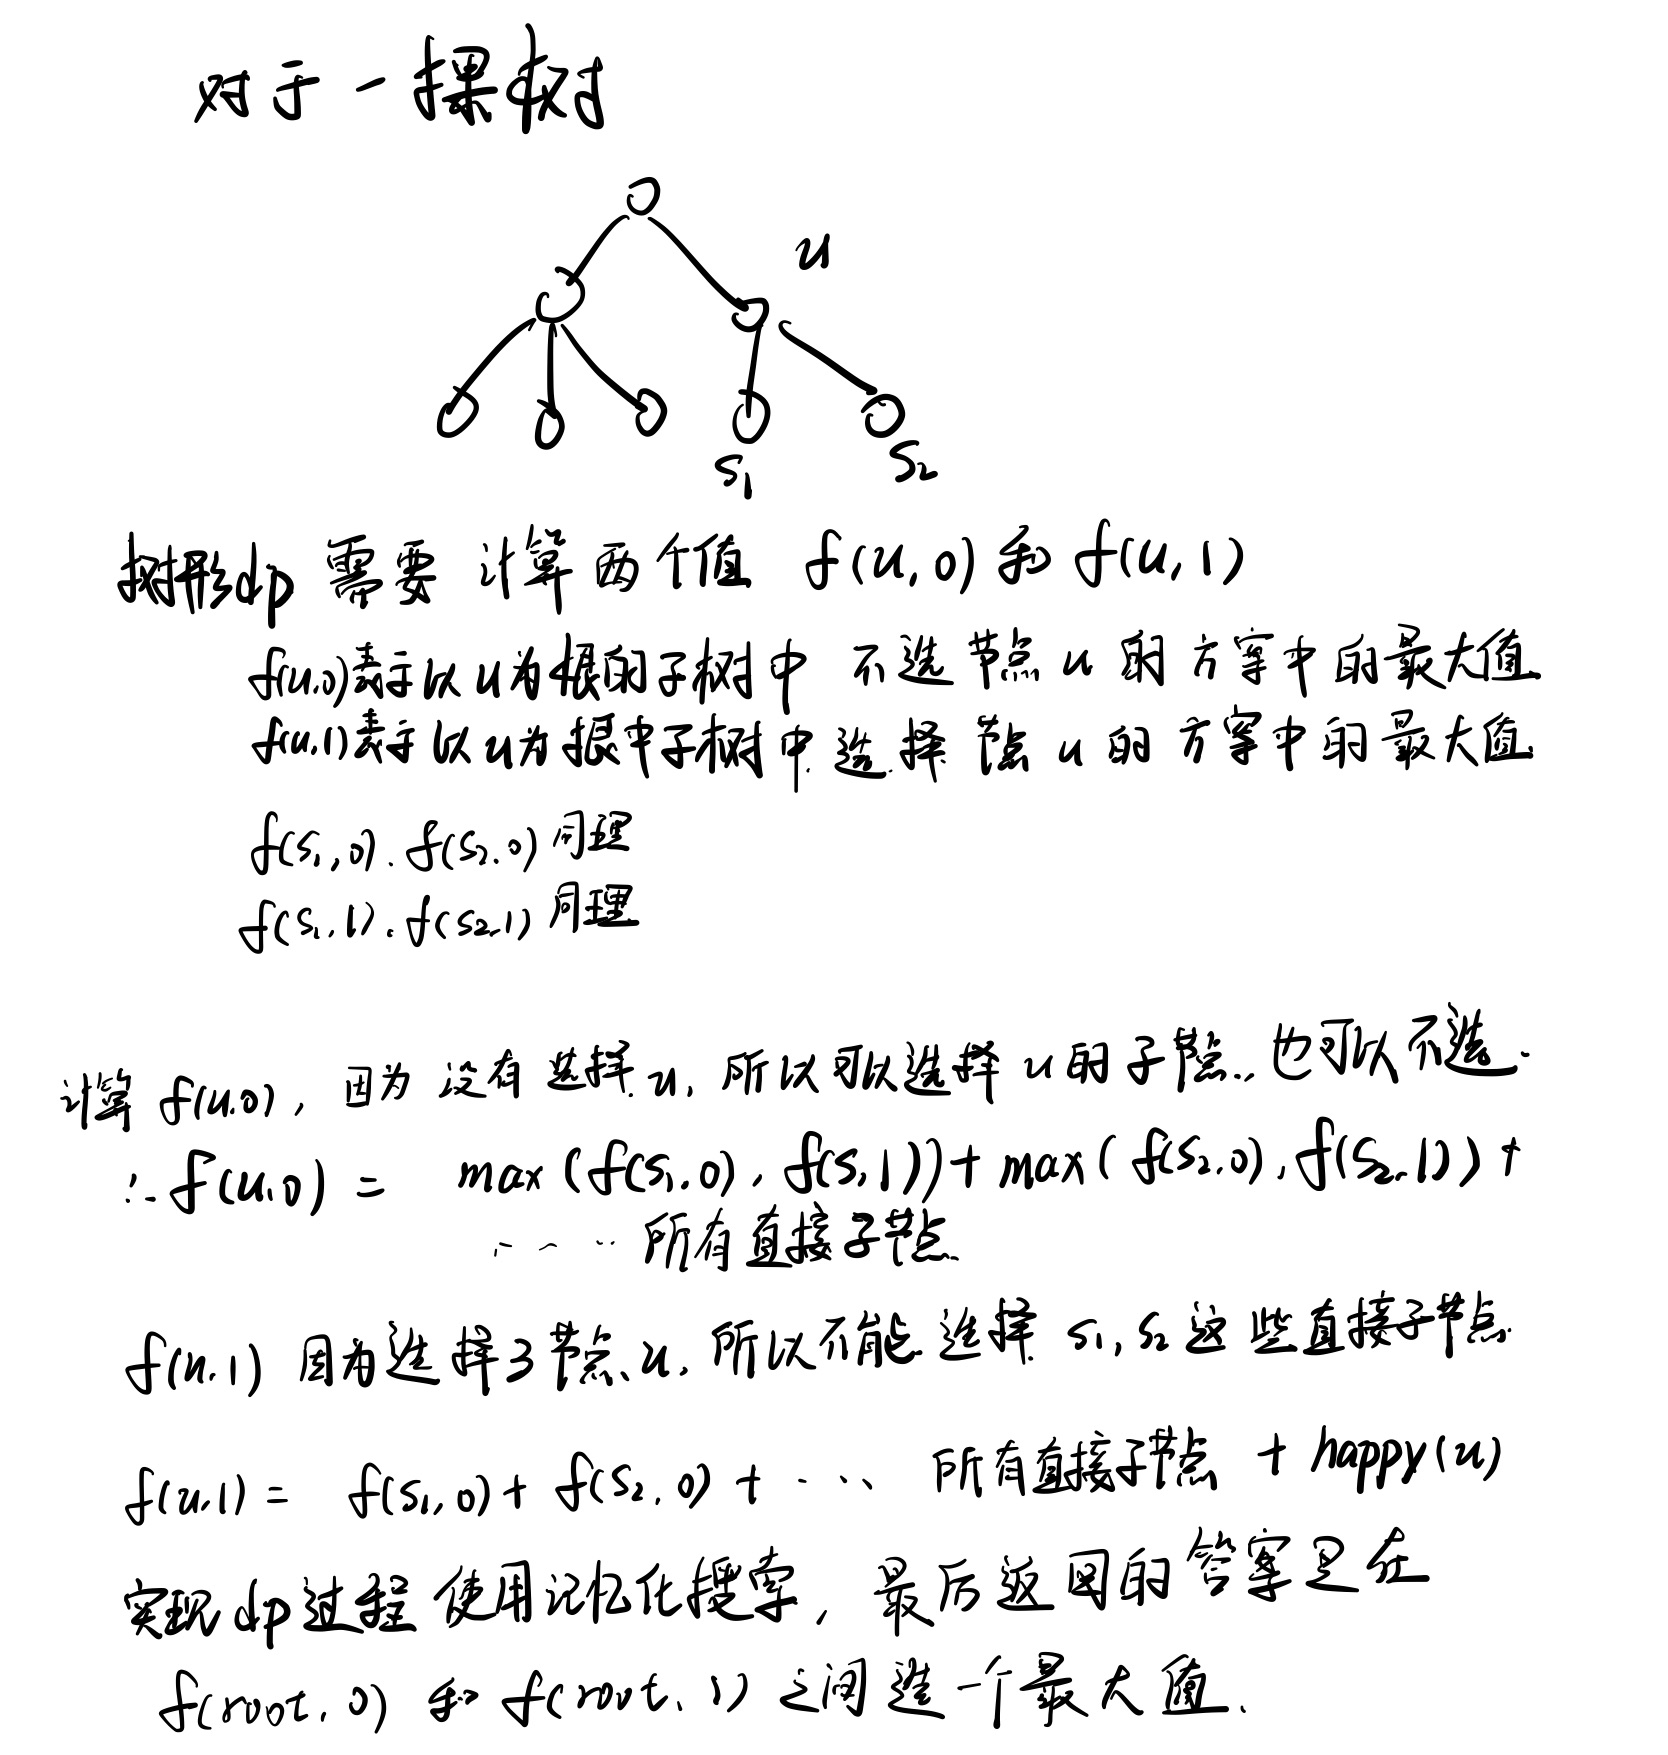 对于一棵树
u
s₁ s₂
树形dp 需要 计算 两个值 f(u,0) 和 f(u,1)
f(u.0)表示以u为根的子树中 不选 节点 u 的 方案中的最大值
f(u,1)表示以u为根中子树中 选择 节点 u 的 方案中的最大值
f(s₁,0). f(s₂.0) 同理
f(s₁,1). f(s₂,1) 同理
计算 f(u.0), 因为 没有 选择 u, 所以可以选择 u 的子节点, 也可以不选.
∴ f(u,0) = max (f(s₁.0), f(s,1))+ max( f(s₂.0), f(s₂,1)) +
.... 所有直接子节点
f(u.1) 因为选择了节点u, 所以不能 选择 s₁, s₂ 这些直接子节点.
f(u,1) = f(s₁,0)+ f(s₂,0) + ... 所有直接子节点 + happy(u)
实现dp过程 使用记忆化搜索, 最后返回的答案是在
f(root,0) 和 f(root,1) 之间 选一个最大值.